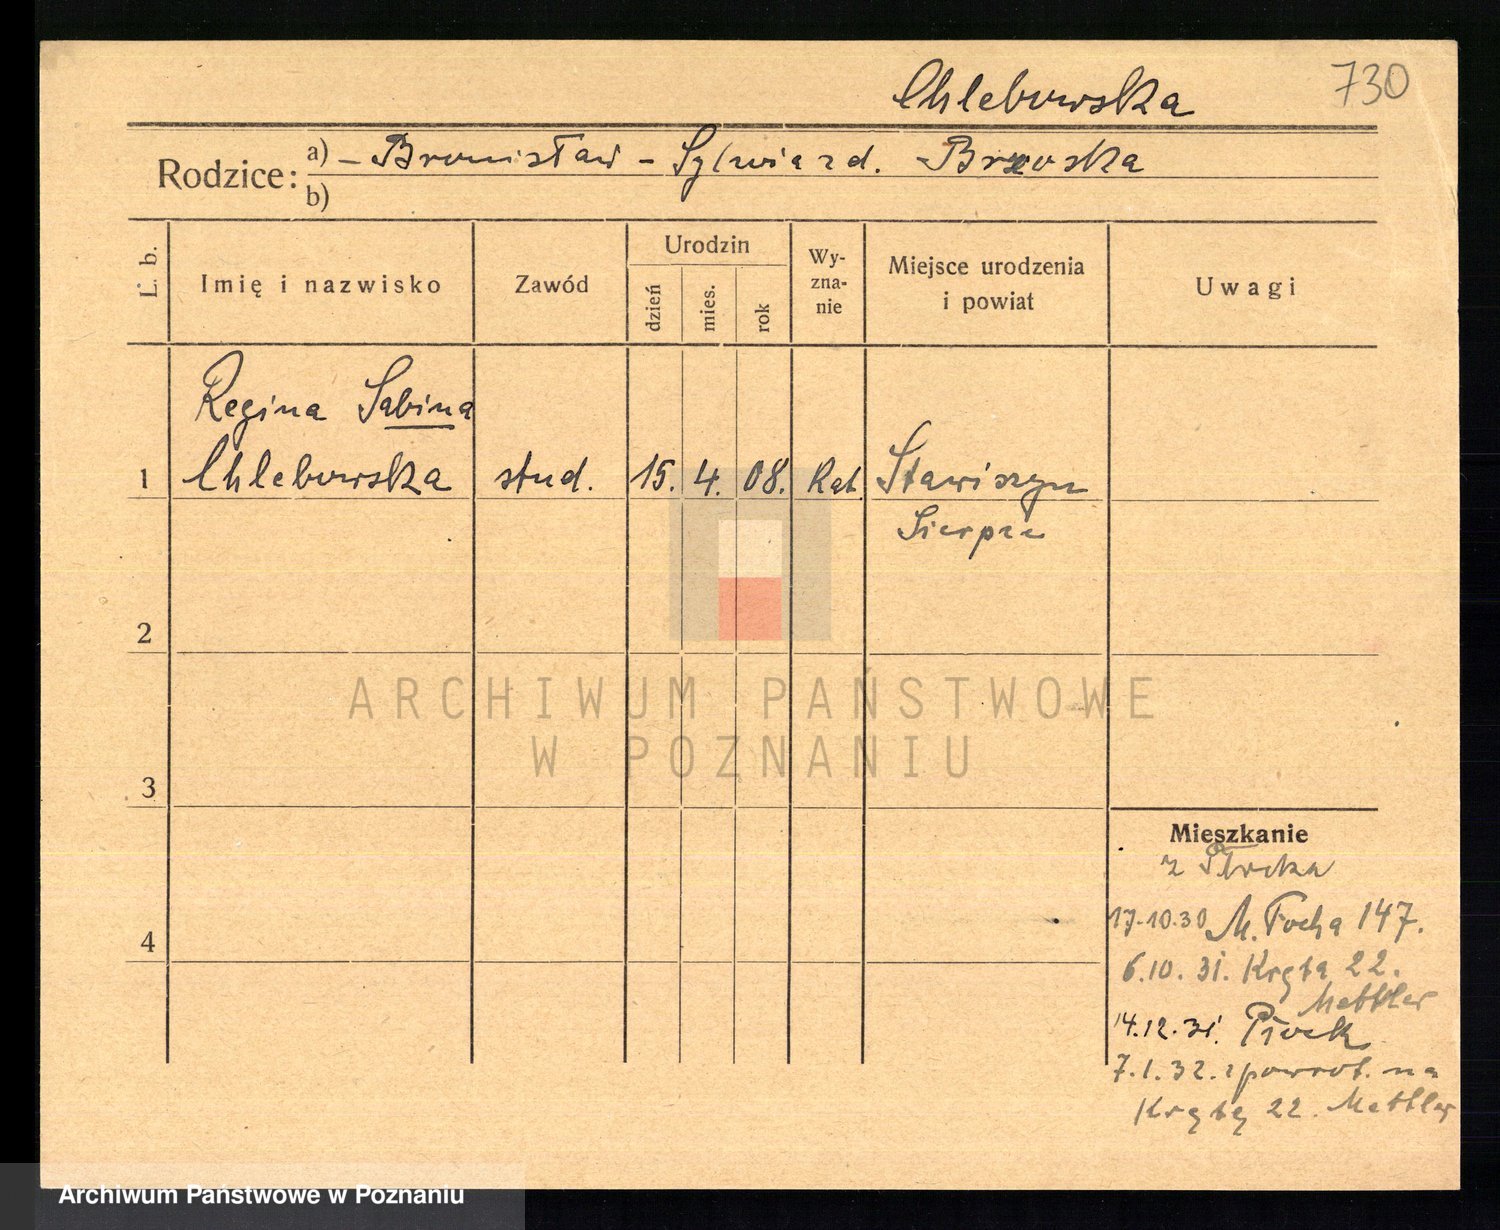 730
Chlebowska
Rodzice: a) – Bronisław – Sylwia z d. Brzoska
b)
L. b.
Imię i nazwisko
Zawód
Urodzin
dzień
mies.
rok
Wy-
zna-
nie
Miejsce urodzenia
i powiat
Uwagi
Regina Sabina
1 Chlebowska stud. 15. 4. 08. Kat. Stawiszyn
Sierpce
2
3
4
ARCHIWUM PAŃSTWOWE
W POZNANIU
Mieszkanie
z Płocka
17.10.30 M. Focha 147.
6.10.31. Kręta 22.
Mettler
14.12.31. Płock
7.1.32. z powrot. na
Krętą 22. Mettler
Archiwum Państwowe w Poznaniu